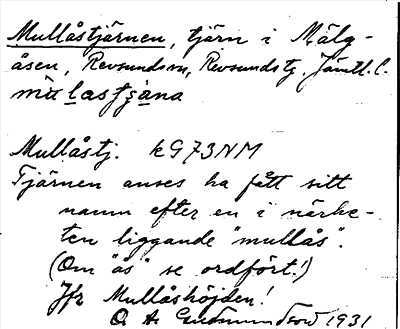 Mullåstjärnen, tjärn i Mälg-
åsen, Revsundssn, Revsunds tg, Jämtl. l.
Mullåstj. kG73NM
Tjärnen anses ha fått sitt
namn efter en i närhe-
ten liggande "mullås".
(Om "ås" se ordfört.!)
Jfr Mullåshöjden!
1931